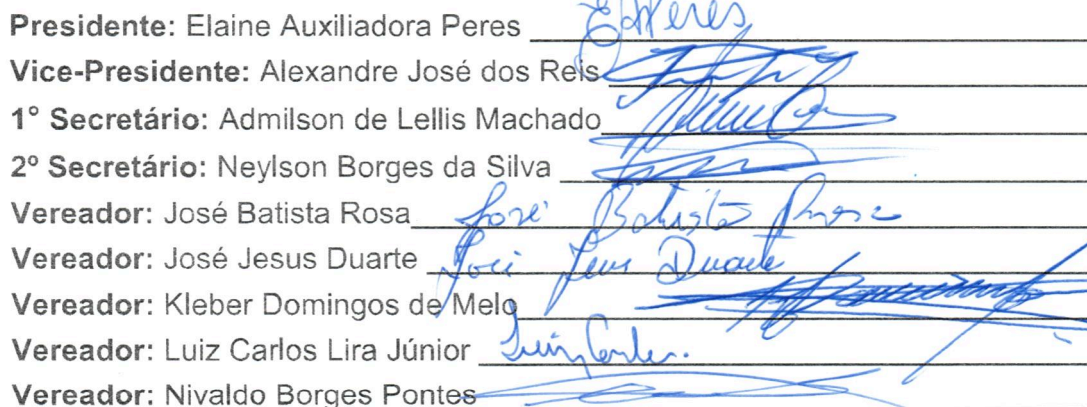 Presidente: Elaine Auxiliadora Peres EAPeres
Vice-Presidente: Alexandre José dos Reis
1° Secretário: Admilson de Lellis Machado
2º Secretário: Neylson Borges da Silva
Vereador: José Batista Rosa José Batista Rosa
Vereador: José Jesus Duarte José Jesus Duarte
Vereador: Kleber Domingos de Melo
Vereador: Luiz Carlos Lira Júnior Luiz Carlos.
Vereador: Nivaldo Borges Pontes